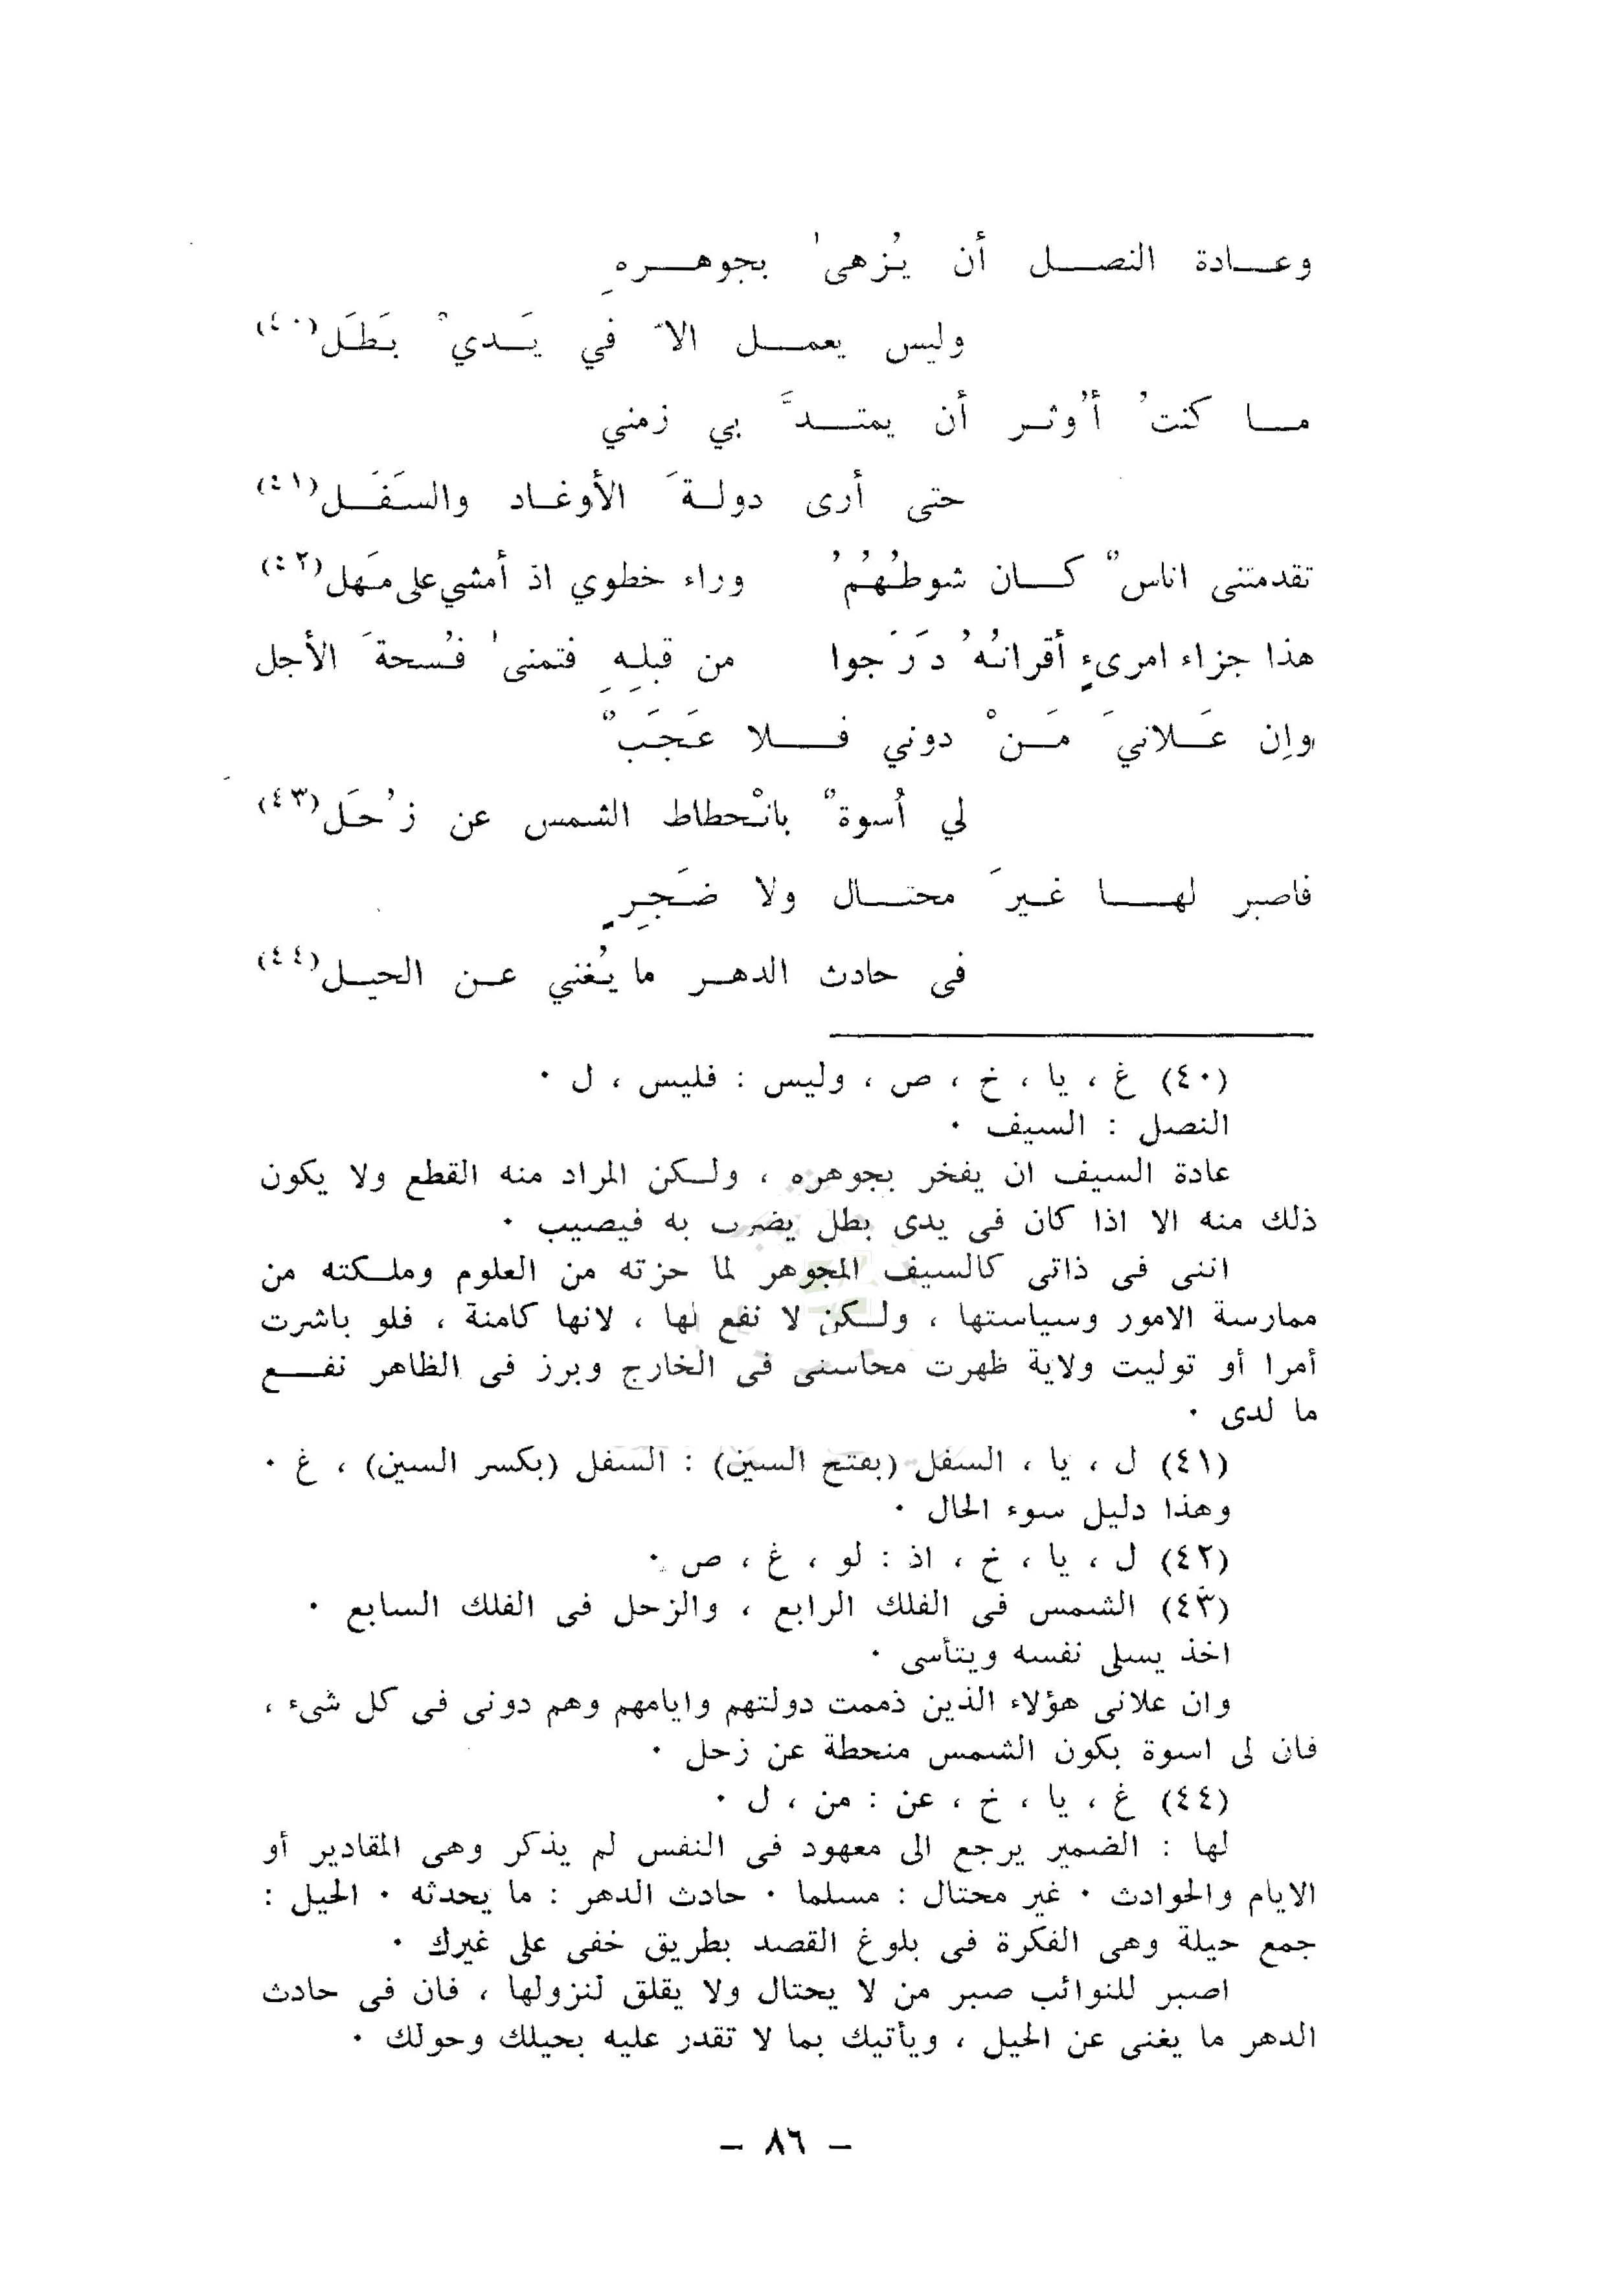 وعادة النصل أن يُزهى بجوهرهِ
وليس يعمل الاّ في يَديْ بَطَل(٤٠)
ما كنتُ أُوثر أن يمتدَّ بي زمني
حتى أرى دولةَ الأوغاد والسَفَل(٤١)
تقدمتنى اناسٌ كان شوطُهُمُ وراء خطوي اذ أمشي على مَهل(٤٢)
هذا جزاء امرىءٍ أقرانُهُ دَرَجوا من قبلِهِ فتمنى فُسحةَ الأجل
وإن عَلانيَ مَنْ دوني فلا عَجَبٌ
لي أُسوةٌ بانْحطاط الشمس عن زُحَل(٤٣)
فاصبر لها غيرَ محتال ولا ضَجِرٍ
فى حادث الدهر ما يُغني عن الحيل(٤٤)
(٤٠) غ ، يا ، خ ، ص ، وليس : فليس ، ل ٠
النصل : السيف ٠
عادة السيف ان يفخر بجوهره ، ولكن المراد منه القطع ولا يكون
ذلك منه الا اذا كان فى يدى بطل يضرب به فيصيب ٠
اننى فى ذاتى كالسيف المجوهر لما حزته من العلوم وملكته من
ممارسة الامور وسياستها ، ولكن لا نفع لها ، لانها كامنة ، فلو باشرت
أمرا أو توليت ولاية ظهرت محاسنى فى الخارج وبرز فى الظاهر نفع
ما لدى ٠
(٤١) ل ، يا ، السفل (بفتح السين) : السفل (بكسر السين) ، غ ٠
وهذا دليل سوء الحال ٠
(٤٢) ل ، يا ، خ ، اذ : لو ، غ ، ص ٠
(٤٣) الشمس فى الفلك الرابع ، والزحل فى الفلك السابع ٠
اخذ يسلى نفسه ويتأسى ٠
وان علانى هؤلاء الذين ذممت دولتهم وايامهم وهم دونى فى كل شىء ،
فان لى اسوة بكون الشمس منحطة عن زحل ٠
(٤٤) غ ، يا ، خ ، عن : من ، ل ٠
لها : الضمير يرجع الى معهود فى النفس لم يذكر وهى المقادير أو
الايام والحوادث ٠ غير محتال : مسلما ٠ حادث الدهر : ما يحدثه ٠ الحيل :
جمع حيلة وهى الفكرة فى بلوغ القصد بطريق خفى على غيرك ٠
اصبر للنوائب صبر من لا يحتال ولا يقلق لنزولها ، فان فى حادث
الدهر ما يغنى عن الحيل ، ويأتيك بما لا تقدر عليه بحيلك وحولك ٠
– ٨٦ –